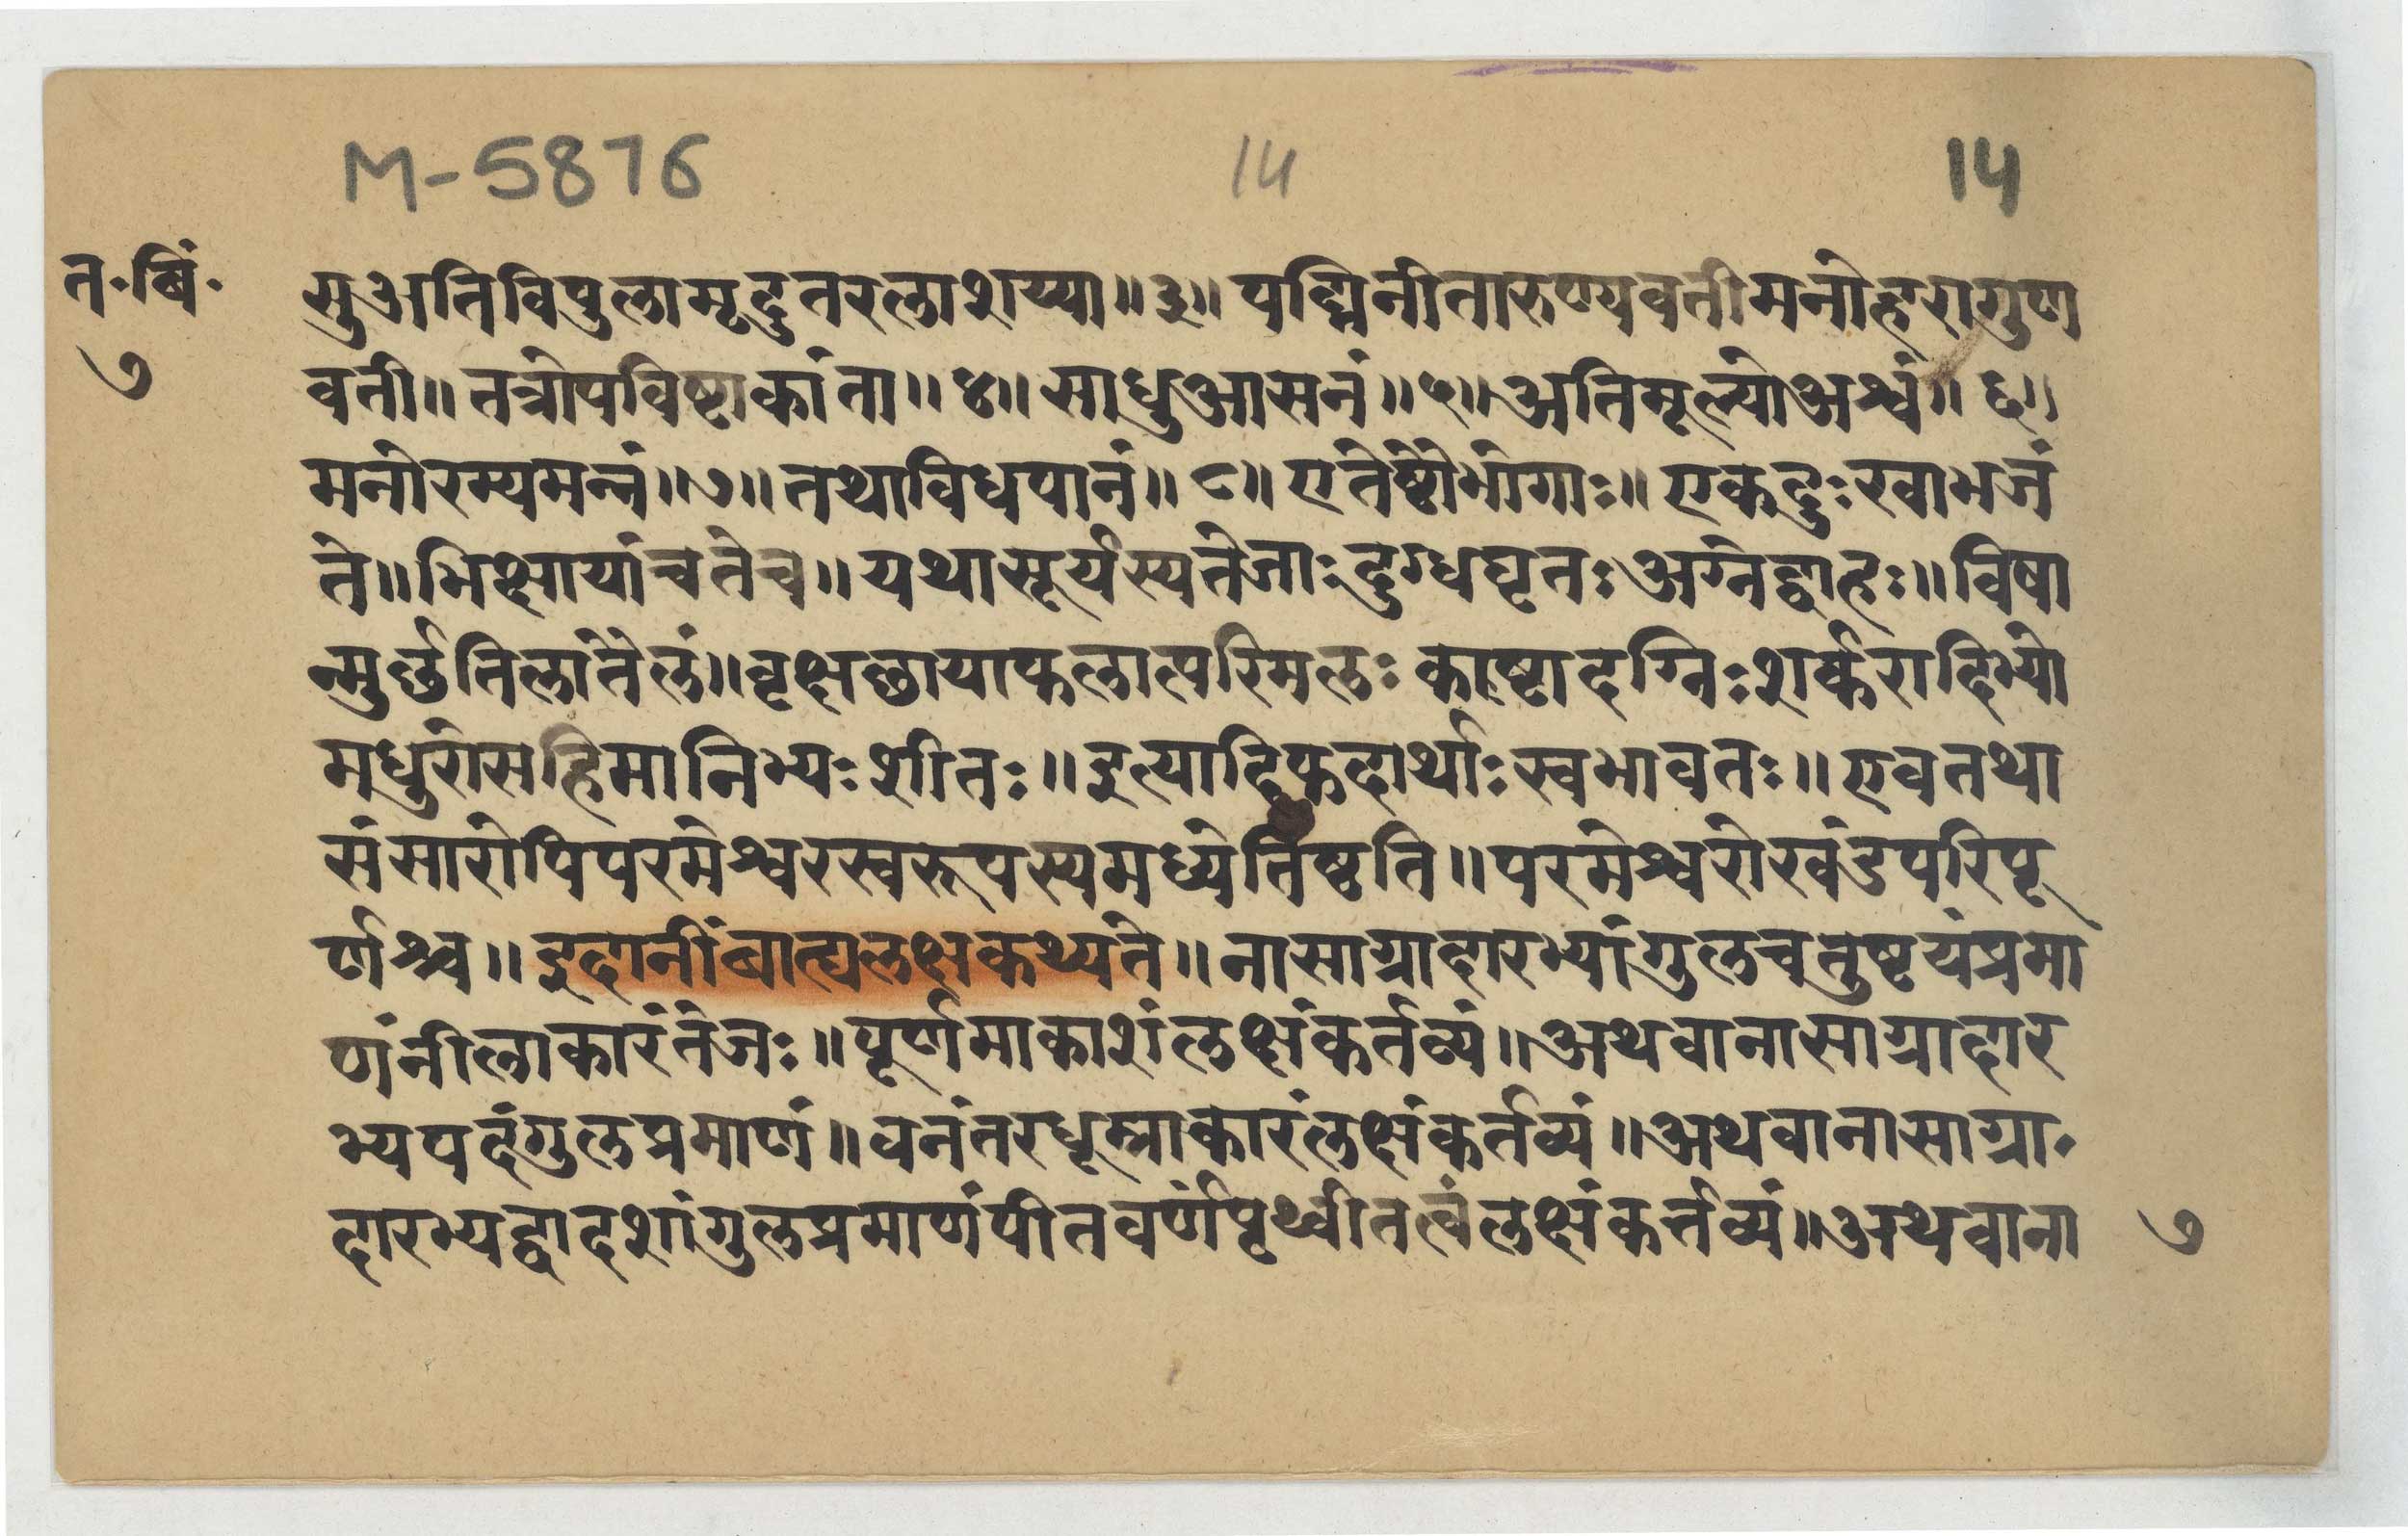 M-5876 14 14
त॰बिं॰
७
सुअतिविपुलामृदुतरलाशय्या॥३॥पद्मिनीतारुण्यवतीमनोहरागुण
वती॥तत्रोपविष्टाकांता॥४॥साधुआसनं॥५॥अतिमूल्योअश्वं॥६॥
मनोरम्यमन्नं॥७॥तथाविधपानं॥८॥एतेष्टौभोगाः॥एकदुःखाभजं
ते॥भिक्षायांचतेच॥यथासूर्यस्यतेजाःदुग्धघृतःअग्नेद्वाहः॥विषा
न्मुर्छतिलांतेलं॥वृक्षछायाफलात्परिमलःकाष्टादग्निःशर्करादिभ्यो
मधुरोसहिमानिभ्यःशीतः॥इत्यादिफदार्थाःस्वभावतः॥एवतथा
संसारोपिपरमेश्वरस्वरूपस्यमध्येतिष्ठति॥परमेश्वरोखंडपरिपू
र्णश्च॥इदानींबात्द्यलक्षकथ्यते॥नासाग्रादारभ्यांगुलचतुष्टयंप्रमा
णंनीलाकारंतेजः॥पूर्णमाकाशंलक्षंकर्तव्यं॥अथवानासाग्रादार
भ्यपदंगुलप्रमाणं॥वनंतरधूम्राकारंलक्षंकर्तव्यं॥अथवानासाग्रा॰
दारभ्यद्वादशांगुलप्रमाणंपीतवर्णंपृथ्वीतत्वंलक्षंकर्त्तव्यं॥अथवाना
७